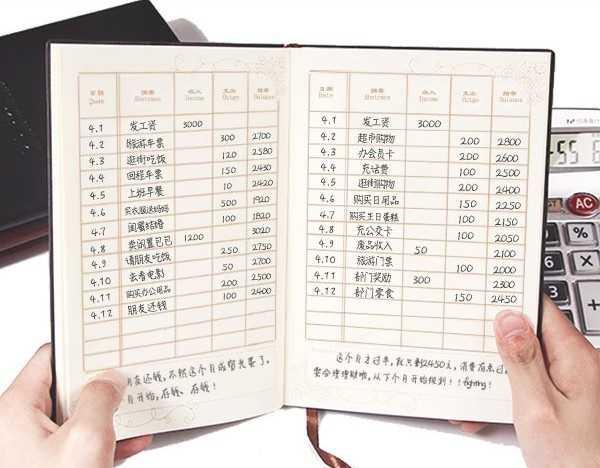 日期 摘要 收入 支出 结余
Abstract Income Outgo Balance
4.1 发工资 3000
4.2 旅游车票 300 2700
4.3 逛街吃饭 120 2580
4.4 回程车票 150 2430
4.5 上班早餐 10 2420
4.6 买衣服送妈妈 500 1920
4.7 闺蜜结婚 100 1820
4.8 卖闲置包包 1200 3020
4.9 请朋友吃饭 250 2750
4.10 去看电影 50 2700
4.11 购买办公用品 200 2500
4.12 朋友还钱 100 2400
朋友还钱,不然这个月成穷光蛋了。
月开始,存钱、存钱!
日期 摘要 收入 支出 结余
Date Abstract Income Outgo Balance
4.1 发工资 3000
4.2 超市购物 200 2800
4.3 办会员卡 200 2600
4.4 充话费 100 2500
4.5 逛街购物 200 2400
4.6 购买日用品 150 2250
4.7 购买生日蛋糕 100 2150
4.8 充公交卡 100 2050
4.9 废品收入 50 2100
4.10 旅游门票 100 2000
4.11 部门奖励 300 2300
4.12 部门零食 150 2450
这个月才过半,我只剩2450元,消费有点过,
要合理理财啦,从下个月开始规划!!fighting!
AC